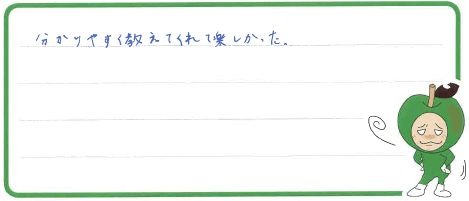 分かりやすく教えてくれて楽しかった。